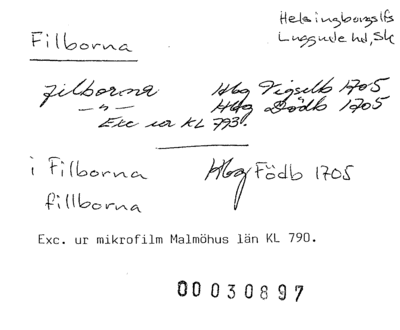 Helsingborgs lfs
Luggude hd, Sk
Filborna
filborna Hbg Vigselb 1705
—"— Hbg Dödb 1705
Exc ur KL 793.
i Filborna Hbg Födb 1705
fillborna
Exc. ur mikrofilm Malmöhus län KL 790.
00030897